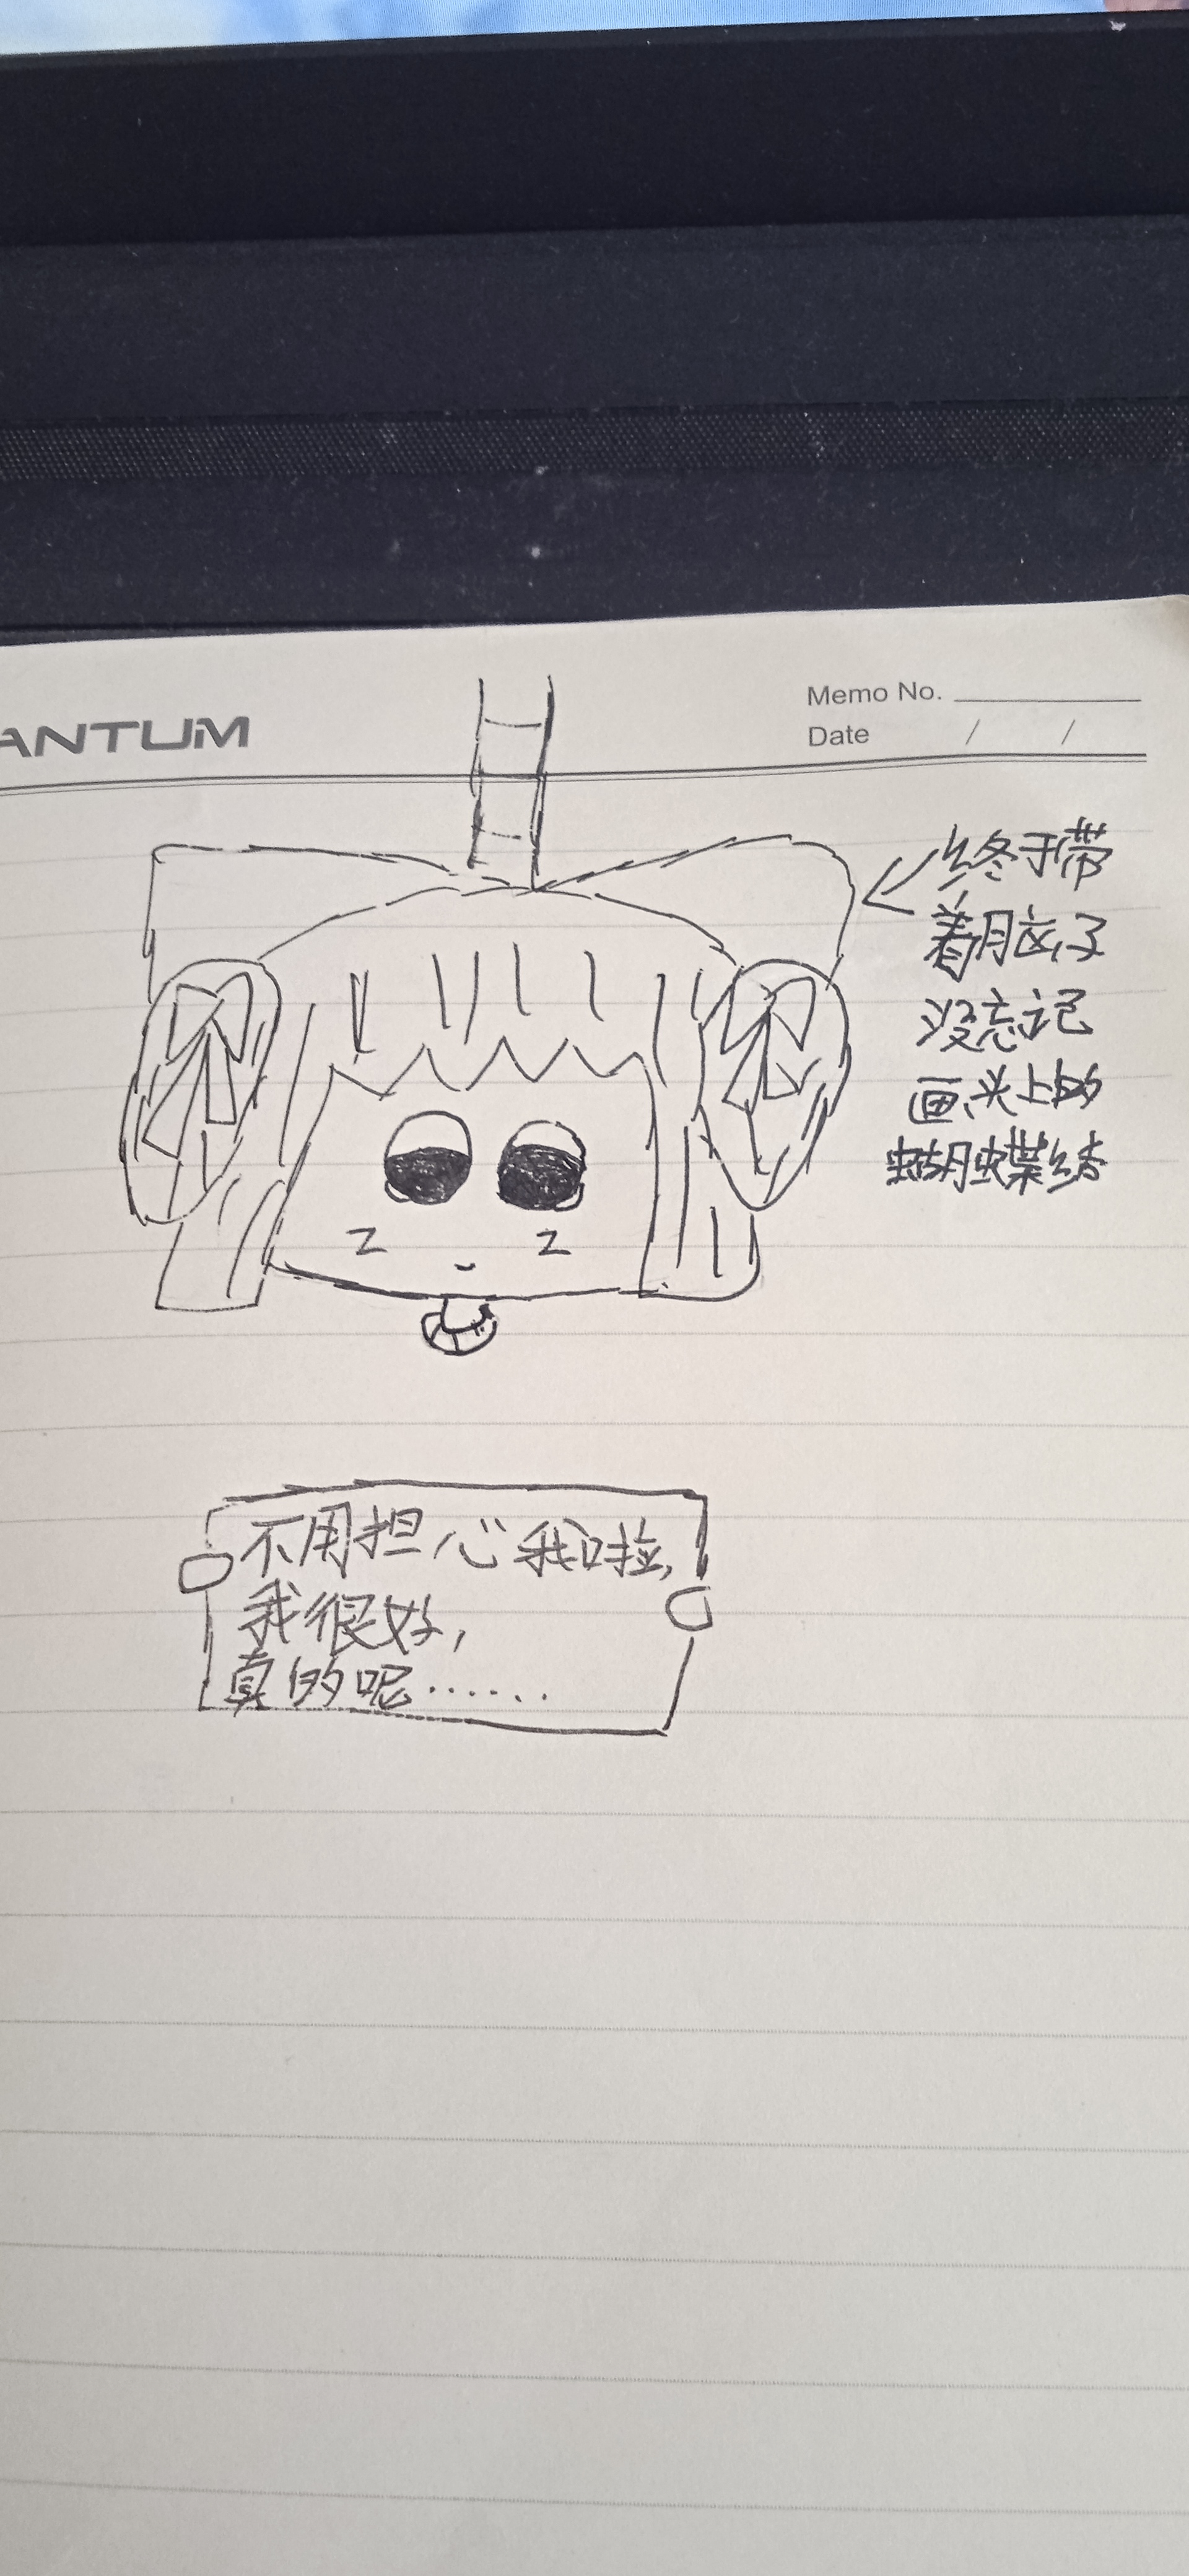 ANTUM
Memo No.
Date / /
终于带
着脑子
没忘记
画头上的
蝴蝶结
z z
不用担心我啦,
我很好,
真的呢……